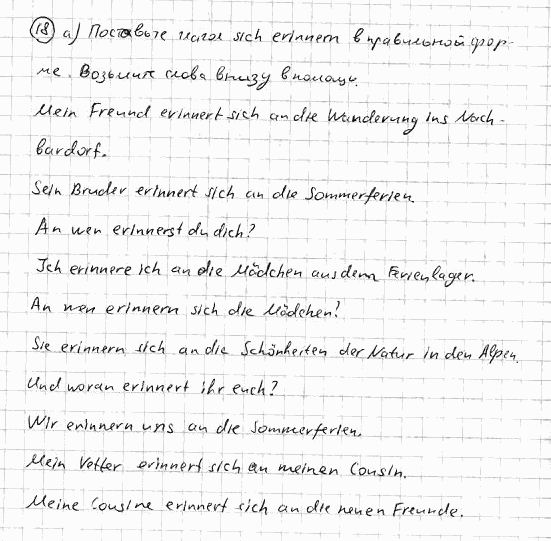 (18) а) Поставьте глагол sich erinnern в правильной фор-
ме. Возьмите слова внизу в помощь.
Mein Freund erinnert sich an die Wanderung ins Nach-
bardorf.
Sein Bruder erinnert sich an die Sommerferien.
An wen erinnerst du dich?
Ich erinnere ich an die Mädchen aus dem Ferienlager.
An wen erinnern sich die Mädchen?
Sie erinnern sich an die Schönheiten der Natur in den Alpen.
Und woran erinnert ihr euch?
Wir erinnern uns an die Sommerferien.
Mein Vetter erinnert sich an meinen Cousin.
Meine Cousine erinnert sich an die neuen Freunde.